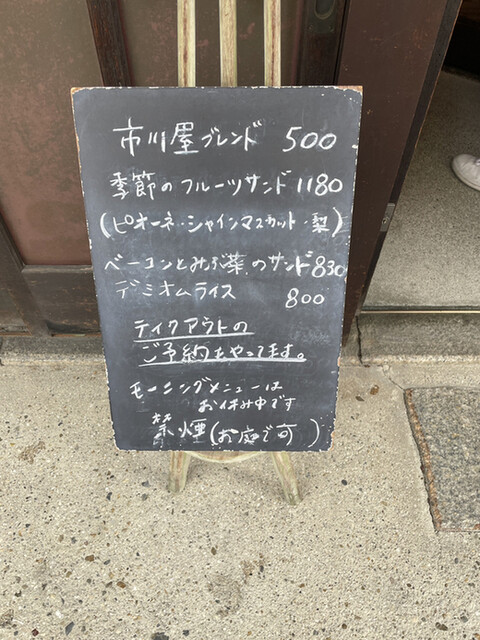 市川屋ブレンド 500
季節のフルーツサンド 1180
(ピオーネ・シャインマスカット・梨)
ベーコンとみぶ菜のサンド 830
デミオムライス 800
テイクアウトの
ご予約もやってます。
モーニングメニューは
お休み中です
禁煙(お庭で可)